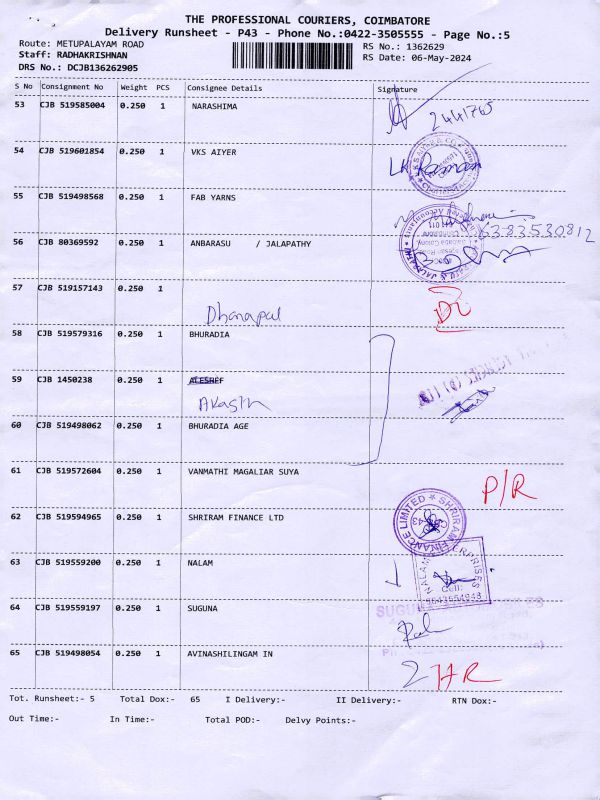 THE PROFESSIONAL COURIERS, COIMBATORE
Delivery Runsheet - P43 - Phone No.:0422-3505555 - Page No.:5
Route: METUPALAYAM ROAD RS No.: 1362629
Staff: RADHAKRISHNAN RS Date: 06-May-2024
DRS No.: DCJB136262905
S No Consignment No Weight PCS Consignee Details Signature
53 CJB 519585004 0.250 1 NARASHIMA
2441765
54 CJB 519601854 0.250 1 VKS AIYER
LK Raman
55 CJB 519498568 0.250 1 FAB YARNS
6383530812
56 CJB 80369592 0.250 1 ANBARASU / JALAPATHY
57 CJB 519157143 0.250 1
Dhanapal DL
58 CJB 519579316 0.250 1 BHURADIA
59 CJB 1450238 0.250 1
Akash
60 CJB 519498062 0.250 1 BHURADIA AGE
61 CJB 519572604 0.250 1 VANMATHI MAGALIAR SUYA
P/R
62 CJB 519594965 0.250 1 SHRIRAM FINANCE LTD
SHRIRAM FINANCE LIMITED
63 CJB 519559200 0.250 1 NALAM
NALAM ENTERPRISES
Cell:
64 CJB 519559197 0.250 1 SUGUNA
SUGUNA
65 CJB 519498054 0.250 1 AVINASHILINGAM IN
Tot. Runsheet:- 5 Total Dox:- 65 I Delivery:- II Delivery:- RTN Dox:-
Out Time:- In Time:- Total POD:- Delvy Points:-